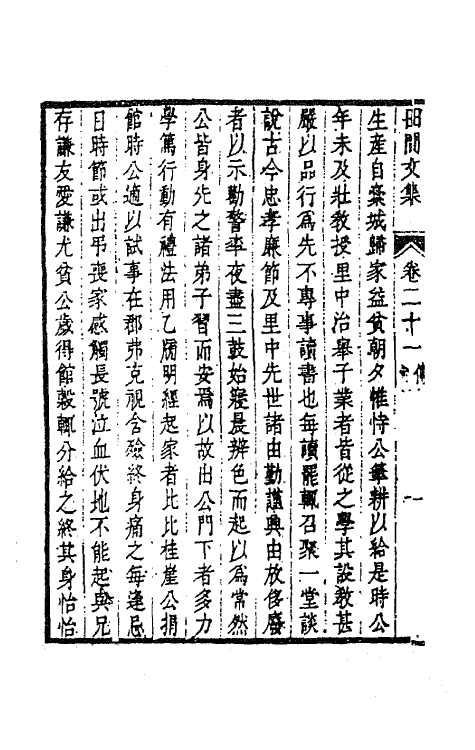 田間文集 卷二十一 傳 一
生產自棄城歸家益貧朝夕惟恃公筆耕以給是時公
年未及壯教授里中治舉子業者皆從之學其設教甚
嚴以品行為先不專事讀書也每讀罷輒召聚一堂談
說古今忠孝廉節及里中先世諸由勤謹興由放侈廢
者以示勸警率夜盡三鼓始寢晨辨色而起以為常然
公皆身先之諸弟子習而安焉以故出公門下者多力
學篤行動有禮法用乙牓明經起家者比比桂崖公捐
館時公適以試事在郡弗克視含殮終身痛之每逢忌
日時節或出弔喪家感觸長號泣血伏地不能起與兄
存謙友愛謙尤貧公歲得館穀輒分給之終其身怡怡